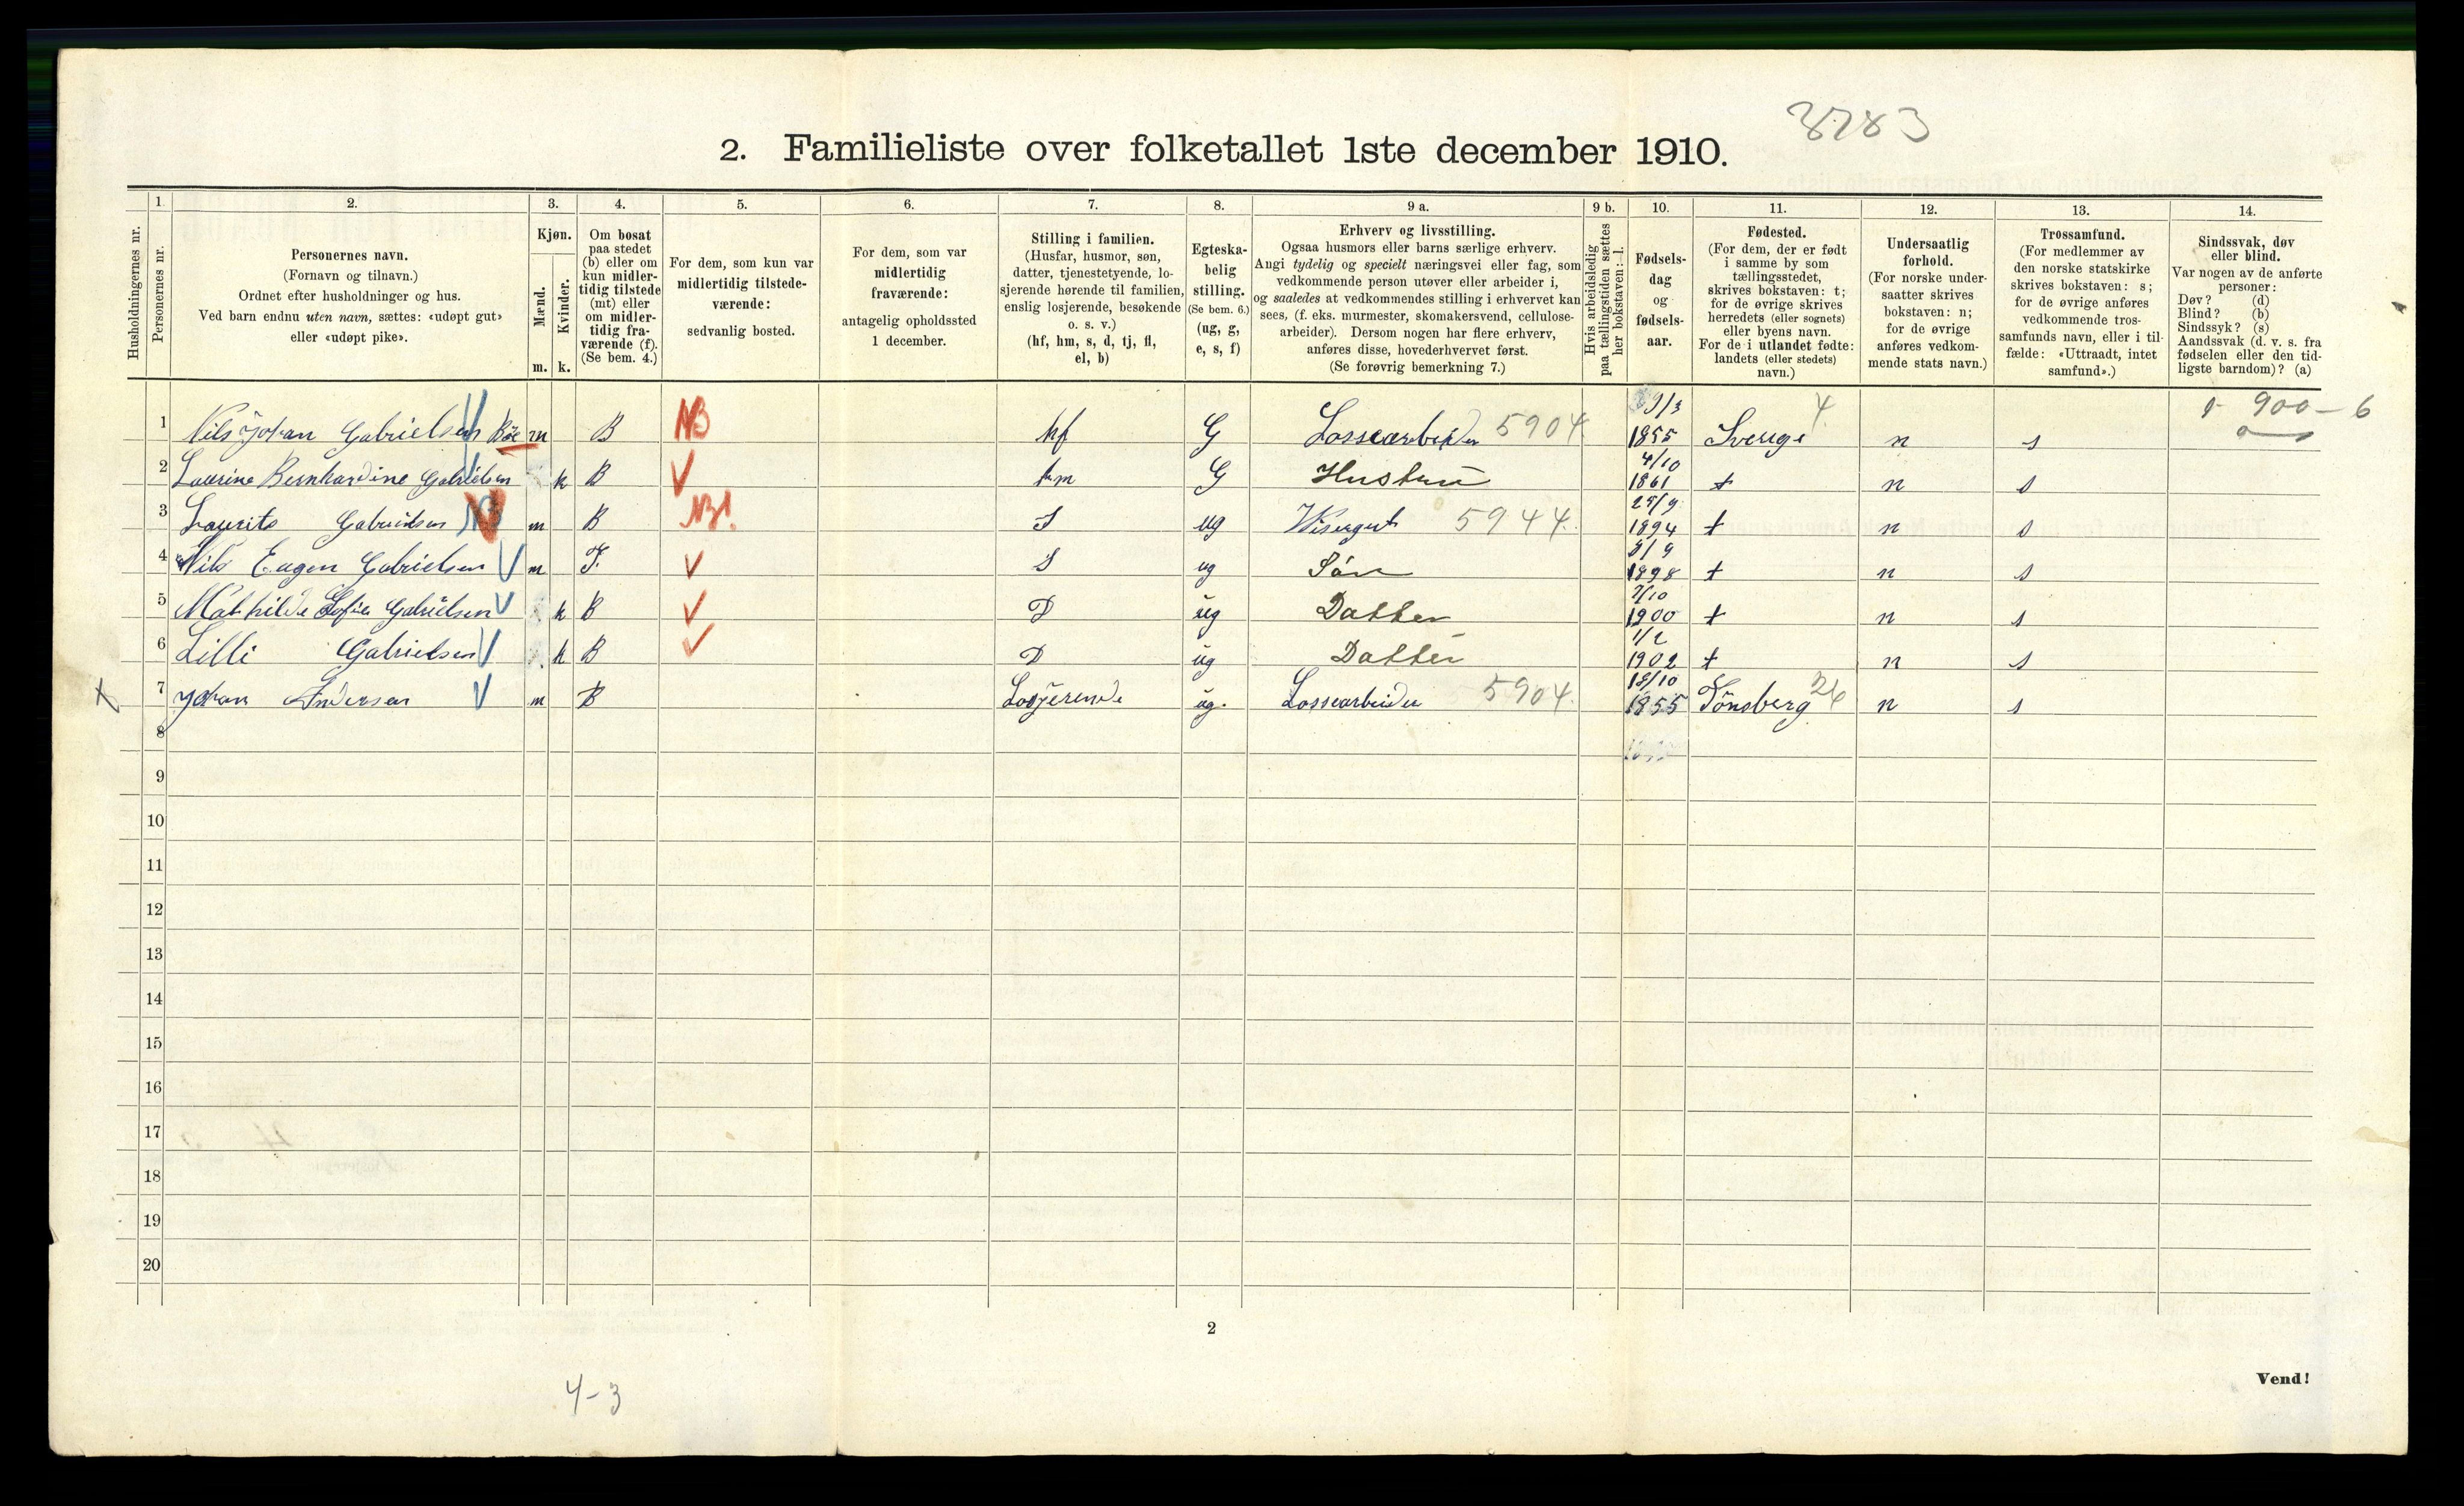 3783
2. Familieliste over folketallet 1ste december 1910.
Husholdningernes nr.
1. Personernes nr.
2. Personernes navn.
(Fornavn og tilnavn.)
Ordnet efter husholdninger og hus.
Ved barn endnu uten navn, sættes: «udøpt gut»
eller «udøpt pike».
3. Kjøn.
Mænd. m.
Kvinder. k.
4. Om bosat
paa stedet
(b) eller om
kun midler-
tidig tilstede
(mt) eller
om midler-
tidig fra-
værende (f).
(Se bem. 4.)
5. For dem, som kun var
midlertidig tilstede-
værende:
sedvanlig bosted.
6. For dem, som var
midlertidig
fraværende:
antagelig opholdssted
1 december.
7. Stilling i familien.
(Husfar, husmor, søn,
datter, tjenestetyende, lo-
sjerende hørende til familien,
enslig losjerende, besøkende
o. s. v.)
(hf, hm, s, d, tj, fl,
el, b)
8. Egteska-
belig
stilling.
(Se bem. 6.)
(ug, g,
e, s, f)
9 a. Erhverv og livsstilling.
Ogsaa husmors eller barns særlige erhverv.
Angi tydelig og specielt næringsvei eller fag, som
vedkommende person utøver eller arbeider i,
og saaledes at vedkommendes stilling i erhvervet kan
sees, (f. eks. murmester, skomakersvend, cellulose-
arbeider). Dersom nogen har flere erhverv,
anføres disse, hovederhvervet først.
(Se forøvrig bemerkning 7.)
9 b. Hvis arbeidsledig
paa tællingstiden sættes
her bokstaven: l.
10. Fødsels-
dag
og
fødsels-
aar.
11. Fødested.
(For dem, der er født
i samme by som
tællingsstedet,
skrives bokstaven: t;
for de øvrige skrives
herredets (eller sognets)
eller byens navn.
For de i utlandet fødte:
landets (eller stedets)
navn.)
12. Undersaatlig
forhold.
(For norske under-
saatter skrives
bokstaven: n;
for de øvrige
anføres vedkom-
mende stats navn.)
13. Trossamfund.
(For medlemmer av
den norske statskirke
skrives bokstaven: s;
for de øvrige anføres
vedkommende tros-
samfunds navn, eller i til-
fælde: «Uttraadt, intet
samfund».)
14. Sindssvak, døv
eller blind.
Var nogen av de anførte
personer:
Døv? (d)
Blind? (b)
Sindssyk? (s)
Aandssvak (d. v. s. fra
fødselen eller den tid-
ligste barndom)? (a)
1 Nils Johan Gabrielsen m B NB hf G Lossearbeider 5904 9/3 1855 Sverige 4 n s 900-6
2 Laurine Bernhardine Gabrielsen k B hm G Hustru 4/10 1861 t n s
3 Laurits Gabrielsen m B NB! S ug Visergut 5944. 25/9 1894 t n s
4 Nils Eugen Gabrielsen m F. S ug Sön 1898 t n s
5 Mathilde Sofie Gabrielsen k B D ug Datter 7/10 1900 t n s
6 Lilli Gabrielsen k B D ug Datter 1/2 1902 t n s
7 Johan Andersen m B Losjerende ug. Lossearbeider 5904. 18/10 1855 Tönsberg 26 n s
8
9
10
11
12
13
14
15
16
17
18
19
20
2
Vend!
4-3